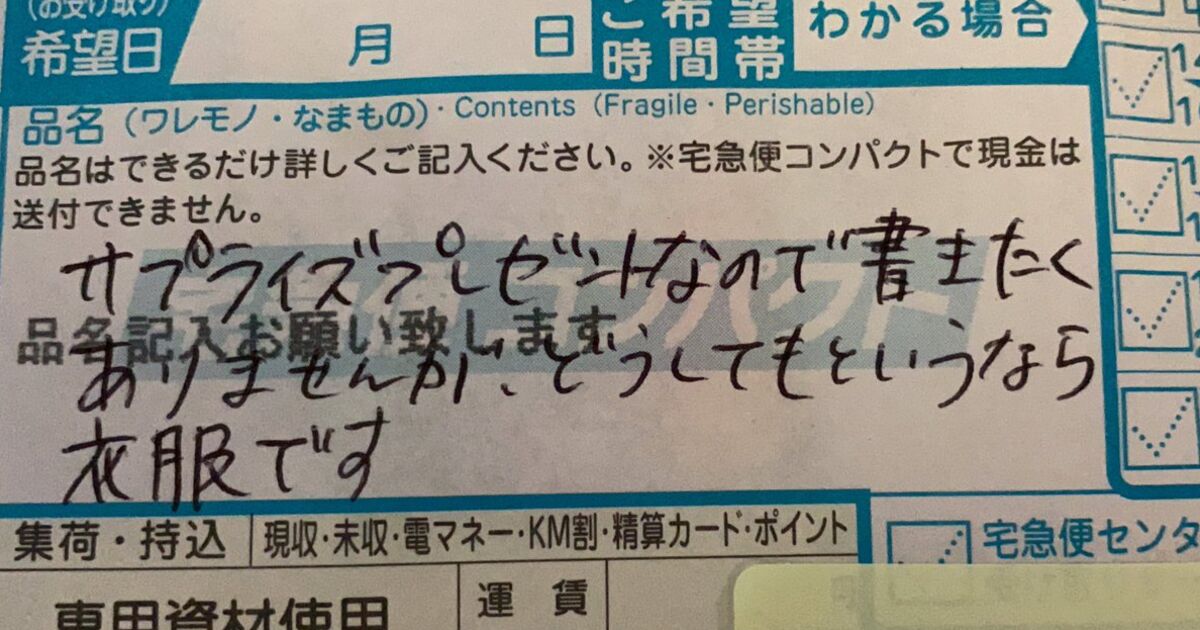 (お受け取り)
希望日
月 日
ご希望
時間帯
わかる場合
品名(ワレモノ・なまもの)・Contents(Fragile・Perishable)
品名はできるだけ詳しくご記入ください。※宅急便コンパクトで現金は
送付できません。
サプライズプレゼントなので書きたく
品名記入お願い致します
ありませんが、どうしてもというなら
衣服です
集荷・持込
現収・未収・電マネー・KM割・精算カード・ポイント
宅急便センタ
専用資材使用
運賃